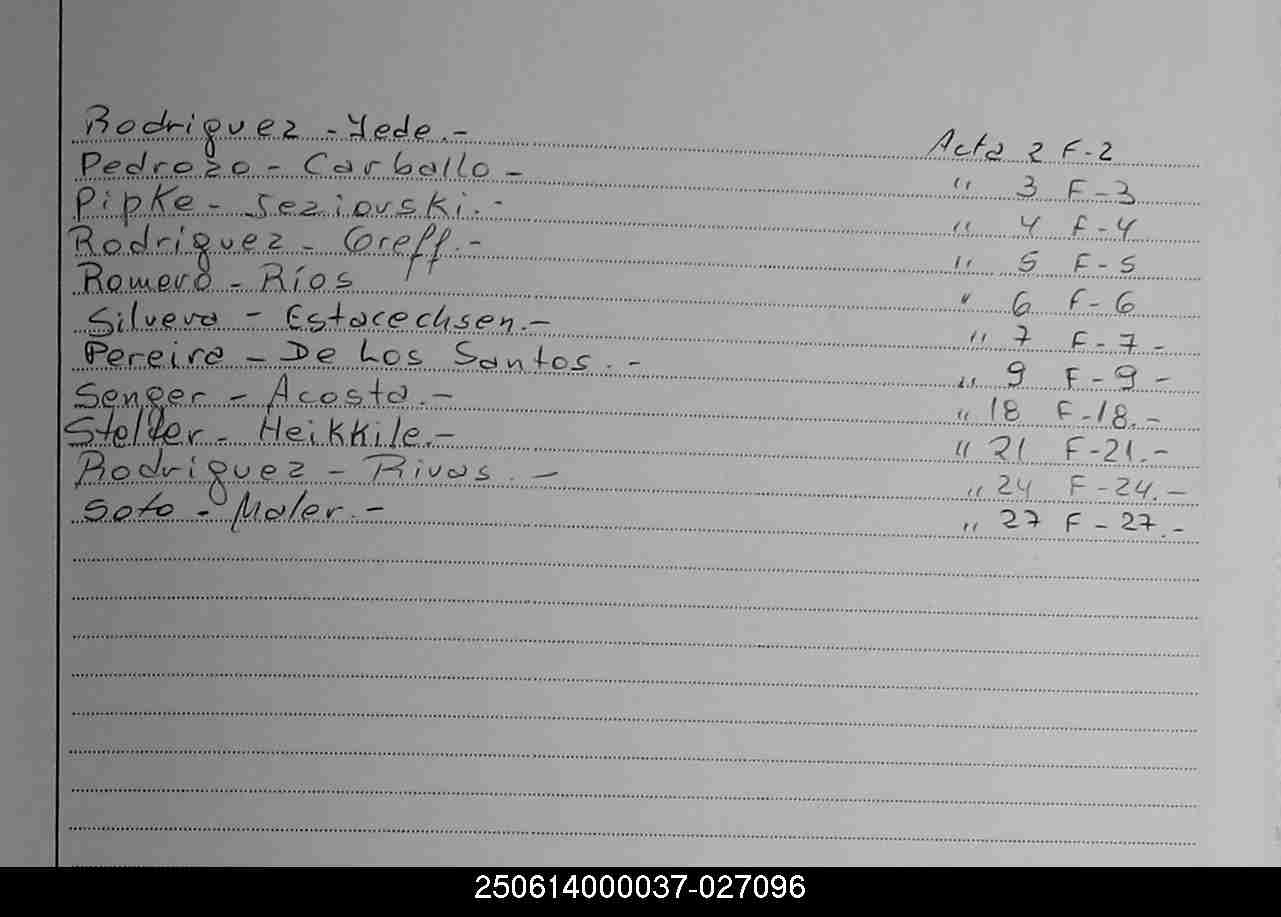 Rodriguez - Yede.- Acta 2 F-2
Pedrozo - Carballo - " 3 F-3
Pipke - Seziovski.- " 4 F-4
Rodriguez - Greff.- " 5 F-5
Romero - Ríos " 6 F-6
Silvera - Estacechsen.- " 7 F-7-
Pereira - De Los Santos.- " 9 F-9-
Senger - Acosta.- " 18 F-18.-
Stelter - Heikkile.- " 21 F-21.-
Rodriguez - Rivas.- " 24 F-24.-
Soto - Maler.- " 27 F-27.-
250614000037-027096